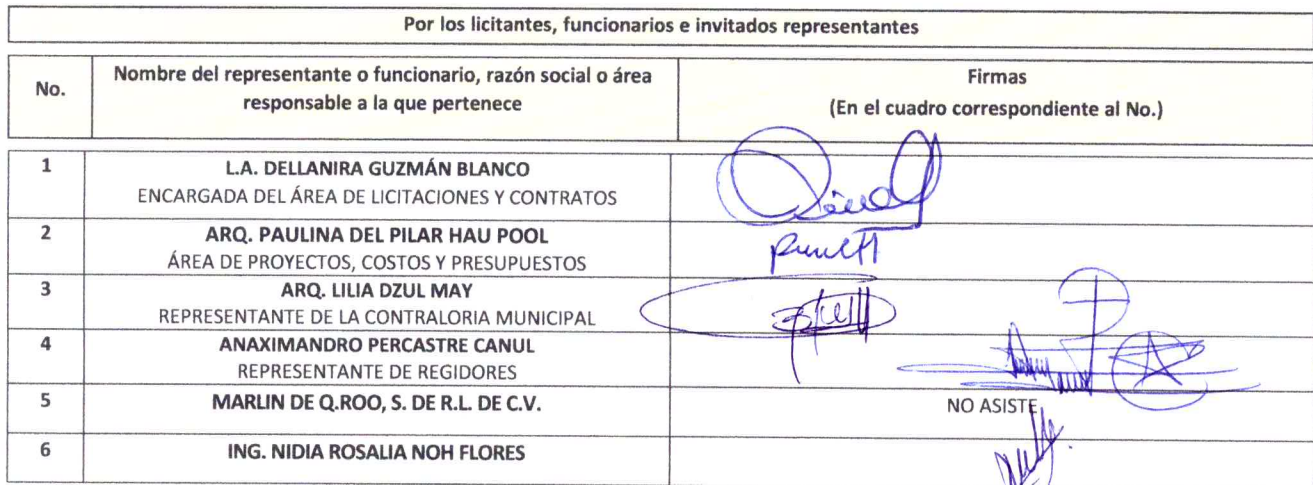 Por los licitantes, funcionarios e invitados representantes
No.
Nombre del representante o funcionario, razón social o área
responsable a la que pertenece
Firmas
(En el cuadro correspondiente al No.)
1
L.A. DELLANIRA GUZMÁN BLANCO
ENCARGADA DEL ÁREA DE LICITACIONES Y CONTRATOS
2
ARQ. PAULINA DEL PILAR HAU POOL
ÁREA DE PROYECTOS, COSTOS Y PRESUPUESTOS
3
ARQ. LILIA DZUL MAY
REPRESENTANTE DE LA CONTRALORIA MUNICIPAL
4
ANAXIMANDRO PERCASTRE CANUL
REPRESENTANTE DE REGIDORES
5
MARLIN DE Q.ROO, S. DE R.L. DE C.V.
NO ASISTE
6
ING. NIDIA ROSALIA NOH FLORES